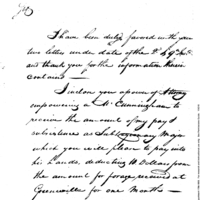 I have been duly favored with your
two letters under date of the 8th & 9th Inst.
and thank you for the information therein
contained —
I inclose you a power of Attorney
empowering a Mr. Cunningham to
receive the amount of my pay &
subsistence as
which you will please to pay into
his hands, deducting 10 Dollars from
the amount for forage received at
Greenville for one Month —